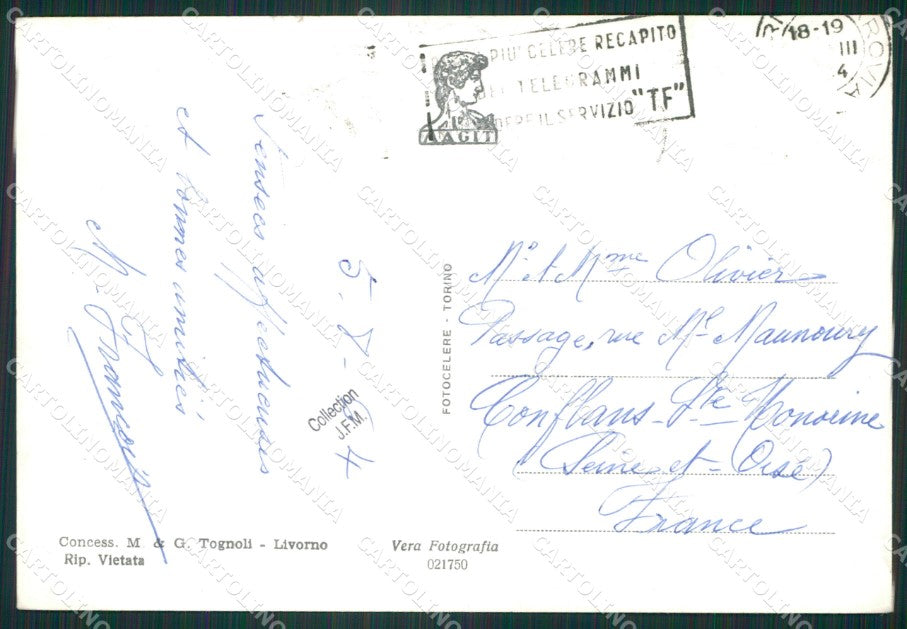 PIU' CELERE RECAPITO
TELEGRAMMI
IL SERVIZIO "TF"
AGIT
18-19
III
4
Pensées affectueuses
et bonnes amitiés
M. Francois
Collection
J.F.M.
FOTOCELERE - TORINO
Mr et Mme Olivier
Passage, rue Ml Maunoury
Conflans-Ste-Honorine
(Seine-et-Oise)
France
Concess. M. & G. Tognoli - Livorno
Rip. Vietata
Vera Fotografia
021750
CARTOLINOMANIA